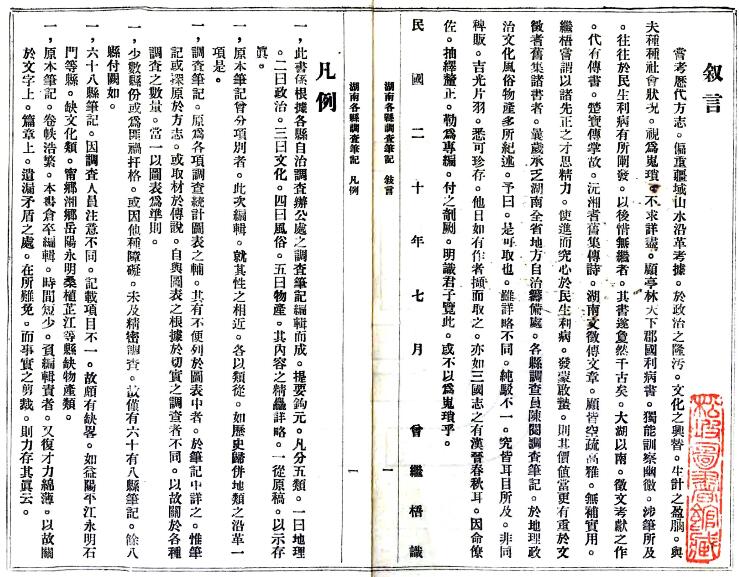 敍言
嘗考歷代方志。偏重疆域山水沿革考據。於政治之隆汚。文化之興替。生計之盈朒。與
夫種種社會狀况。視爲嵬瑣。不求詳盡。顧亭林天下郡國利病書。獨能訓察幽微。涉筆所及
。往往於民生利病有所闡發。以後惜無繼者。其書遂夐然千古矣。大湖以南。徵文考獻之作
。代有傳書。楚寶傳掌故。沅湘耆舊集傳詩。湖南文徵傳文章。顧皆空疏高雅。無補實用。
繼梧嘗謂以諸先正之才思精力。使進而究心於民生利病。發蒙啟蟄。則其價值當更有重於文
徵耆舊集諸書者。曩歲承乏湖南全省地方自治籌備處。各縣調查員陳閱調查筆記。於地理政
治文化風俗物產多所紀述。予曰。是可取也。雖詳略不同。純駁不一。究皆耳目所及。非同
稗販。吉光片羽。悉可珍存。他日如有作者擷而取之。亦如三國志之有漢晉春秋耳。因命僚
佐。抽繹釐正。勒爲專編。付之剞劂。明識君子覽此。或不以爲嵬瑣乎。
民國二十年七月曾繼梧識
湖南各縣調查筆記 敍言 一
湖南各縣調查筆記 凡例 一
凡例
一，此書係根據各縣自治調查辦公處之調查筆記編輯而成。提要鉤元。凡分五類。一曰地理
。二曰政治。三曰文化。四曰風俗。五曰物產。其內容之精麤詳略。一從原稿。以示存
眞。
一，原本筆記曾分項別者。此次編輯。就其性之相近。各以類從。如歷史歸併地類之沿革一
項是。
一，調查筆記。原爲各項調查統計圖表之輔。其有不便列於圖表中者。於筆記中詳之。惟筆
記或搽原於方志。或取材於傳說。自與圖表之根據於切實之調查者不同。以故關於各種
調查之數量。當一以圖表爲準則。
一，少數縣份或爲匪禍扞格。或因他種障礙。未及精密調查。故僅有六十有八縣筆記。餘八
縣付闕如。
一，六十八縣筆記。因調查人員注意不同。記載項目不一。故頗有缺畧。如益陽平江永明石
門等縣。缺文化類。甯鄉湘鄉岳陽永明桑植芷江等縣缺物產類。
一，原本筆記。卷帙浩繁。本書倉卒編輯。時間短少。負編輯責者。又復才力綿薄。以故關
於文字上。篇章上。遺漏矛盾之處。在所難免。而事實之剪裁。則力存其眞云。
松坡圖書館藏